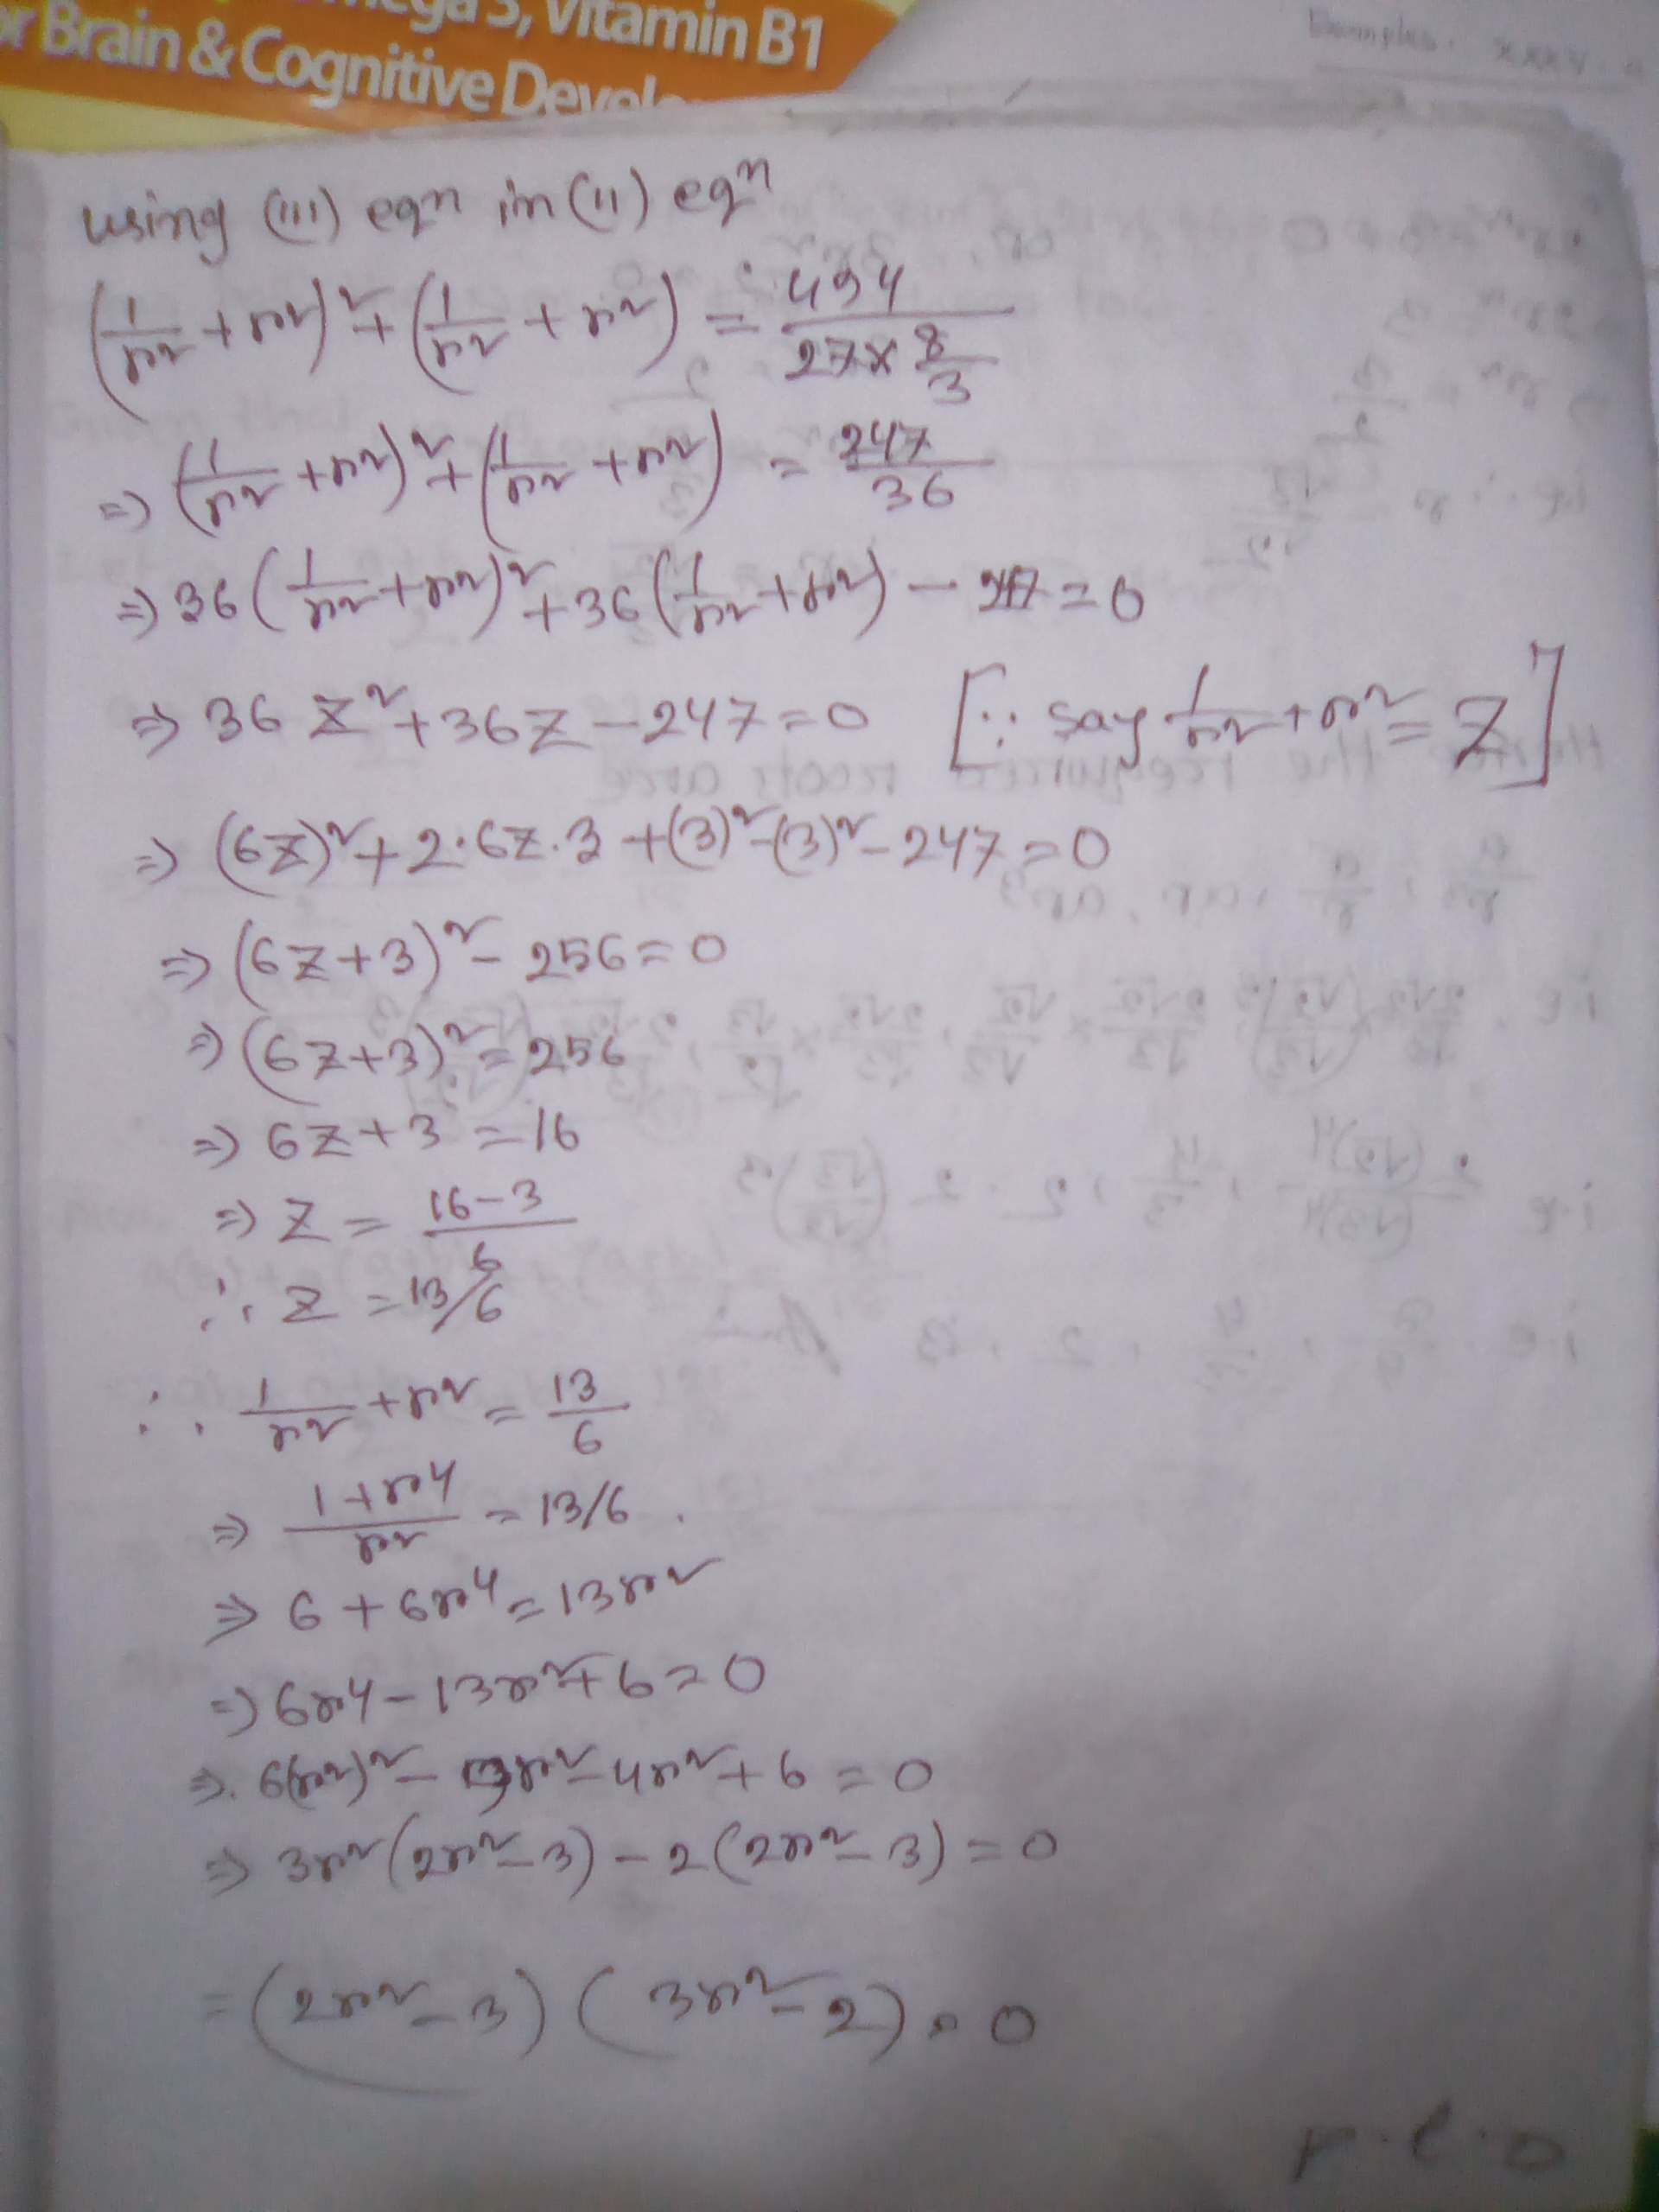 ega 3, Vitamin B1
r Brain & Cognitive Devel
Examples. XXXV.
using (iii) eqn in (ii) eqn
(1/r² + r²)² + (1/r² + r²) = 494/(27 × 8/3)
⇒ (1/r² + r²)² + (1/r² + r²) = 247/36
⇒ 36(1/r² + r²)² + 36(1/r² + r²) − 247 = 0
⇒ 36 Z² + 36Z − 247 = 0 [∵ say 1/r² + r² = Z]
⇒ (6Z)² + 2·6Z·3 + (3)² − (3)² − 247 = 0
⇒ (6Z + 3)² − 256 = 0
⇒ (6Z + 3)² = 256
⇒ 6Z + 3 = 16
⇒ Z = (16 − 3)/6
∴ Z = 13/6
∴ 1/r² + r² = 13/6
⇒ (1 + r⁴)/r² = 13/6.
⇒ 6 + 6r⁴ = 13r²
⇒ 6r⁴ − 13r² + 6 = 0
⇒ 6(r²)² − 9r² − 4r² + 6 = 0
⇒ 3r²(2r² − 3) − 2(2r² − 3) = 0
= (2r² − 3)(3r² − 2) = 0
P.t.o